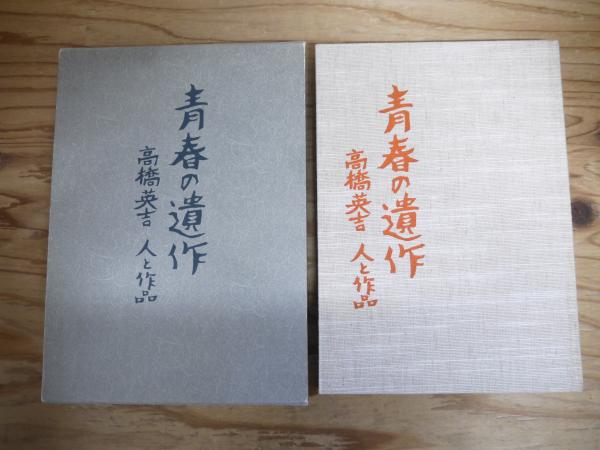 青春の遺作
高橋英吉 人と作品
青春の遺作
高橋英吉 人と作品